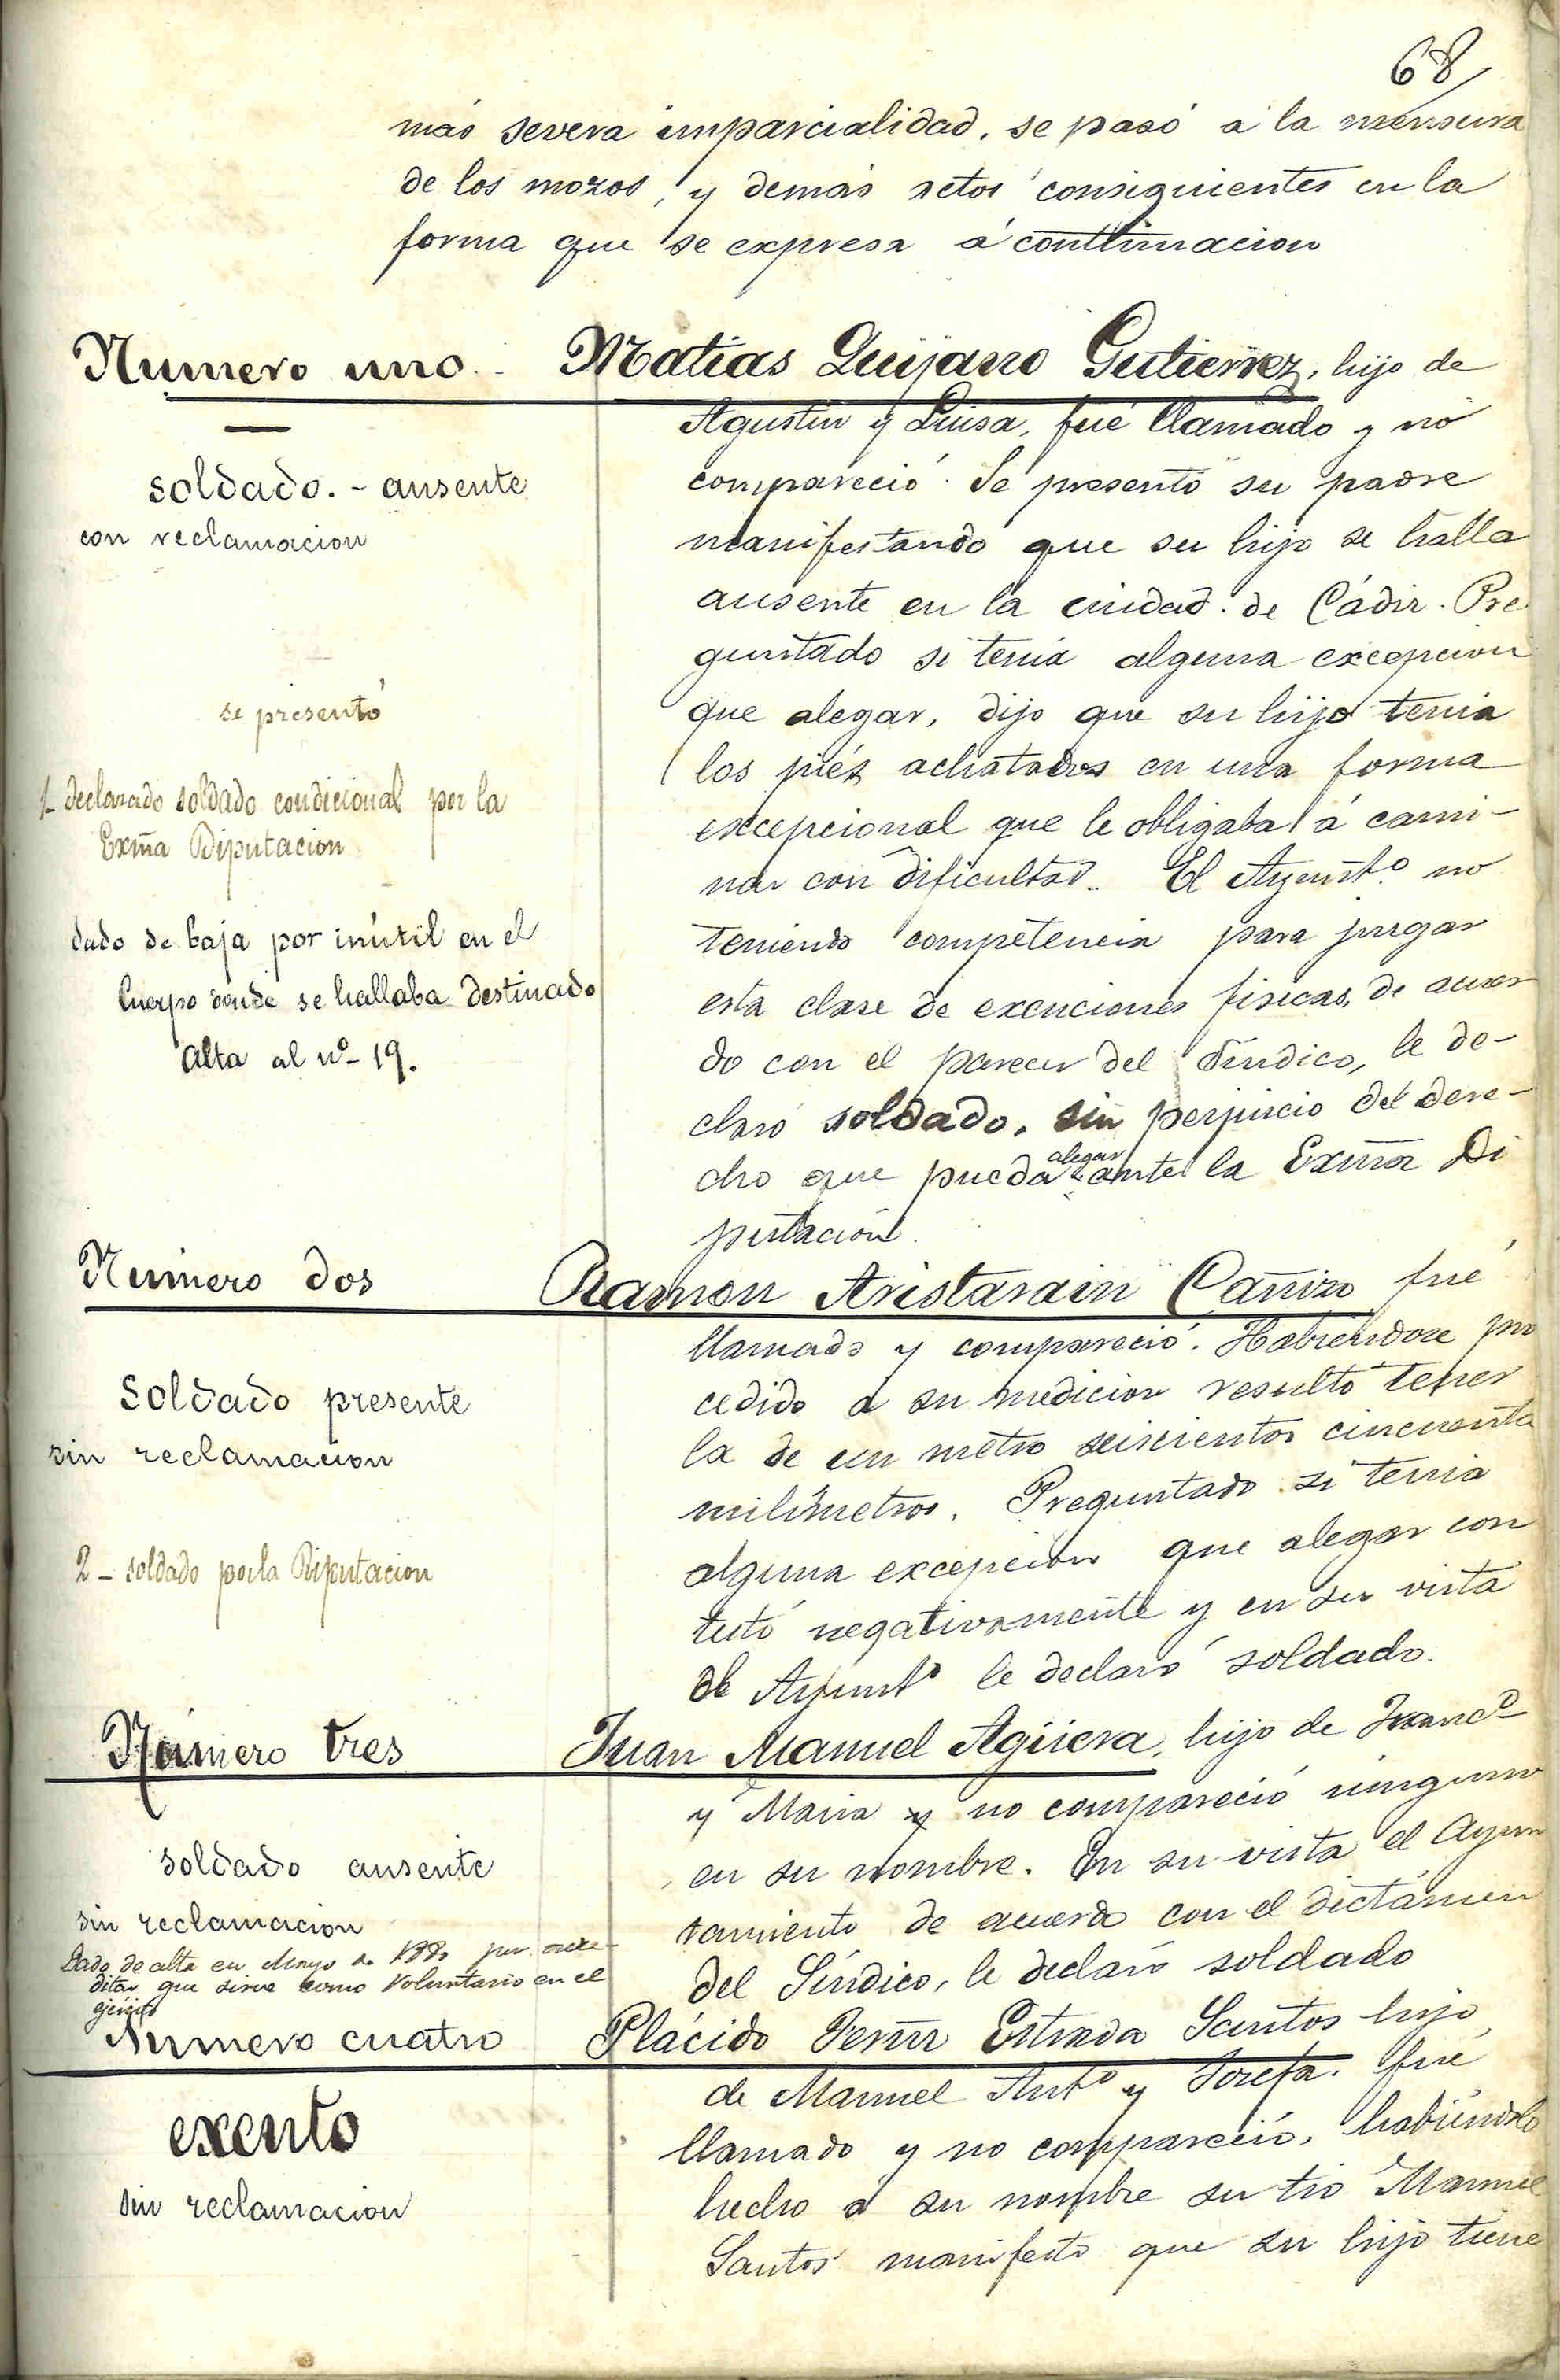 68
más severa imparcialidad, se pasó á la mensura
de los mozos, y demás actos consiguientes en la
forma que se expresa á continuacion
Numero uno. Matias Quijano Gutierrez, hijo de
Agustin y Luisa, fué llamado y no
soldado. - ausente
con reclamacion
compareció. Se presentó su padre
manifestando que su hijo se halla
ausente en la ciudad de Cádiz. Pre
guntado si tenia alguna excepcion
que alegar, dijo que su hijo tenia
los piés achatados en una forma
excepcional que le obligaba á cami-
nar con dificultad. El Ayuntº no
teniendo competencia para juzgar
esta clase de exenciones fisicas, de acuer
do con el parecer del Síndico, le de-
claró soldado, sin perjuicio del dere-
cho que pueda alegar ante la Exma Di
putación.
se presentó
1- declarado soldado condicional por la
Exma Diputacion
dado de baja por inútil en el
Cuerpo donde se hallaba destinado
Alta al nº- 19.
Número dos Ramon Aristarain Cañizo fué
llamado y compareció. Habiendose pro
cedido a su medicion resultó tener
la de un metro seiscientos cincuenta
milímetros. Preguntado si tenia
alguna excepcion que alegar con
testó negativamente y en su vista
el Ayuntº le declaró soldado.
Soldado presente
sin reclamacion
2 - soldado por la Diputacion
Número tres Juan Manuel Agüera, hijo de Francº
y Maria y no compareció ninguno
en su nombre. En su vista el Ayun
tamiento de acuerdo con el dictámen
del Síndico, le declaró soldado
soldado ausente
sin reclamacion
Dado de alta en Mayo de por acre-
ditar que sirve como Voluntario en el
ejército
Numero cuatro Plácido Estrada Santos hijo
de Manuel Antº y Josefa. fué
llamado y no compareció, habiéndolo
hecho á su nombre su tio Manuel
Santos manifestó que su hijo tiene
exento
sin reclamacion